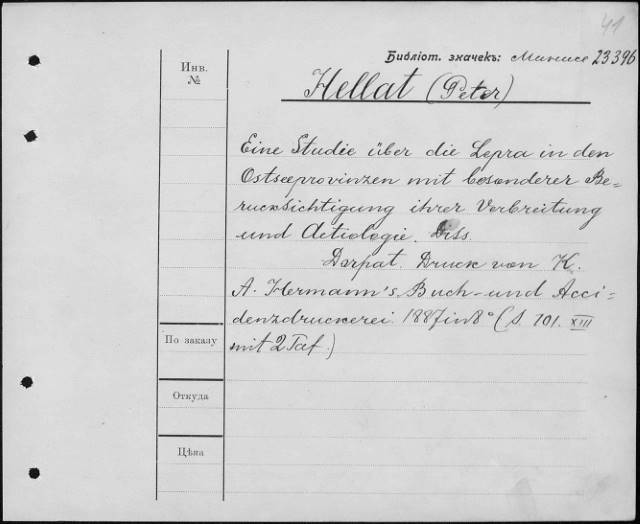 41
Библіот. значекъ: 23396
Инв.
№
Hellat (Peter)
Eine Studie über die Lepra in den
Ostseeprovinzen mit besonderer Be-
rucksichtigung ihrer Verbreitung
und Aetiologie. Diss.
Dorpat. Druck von K.
A. Hermann's Buch- und Acci-
denzdruckerei. 1887 in 8° (S. 101. XIII
mit 2 Taf.)
По заказу
Откуда
Цѣна